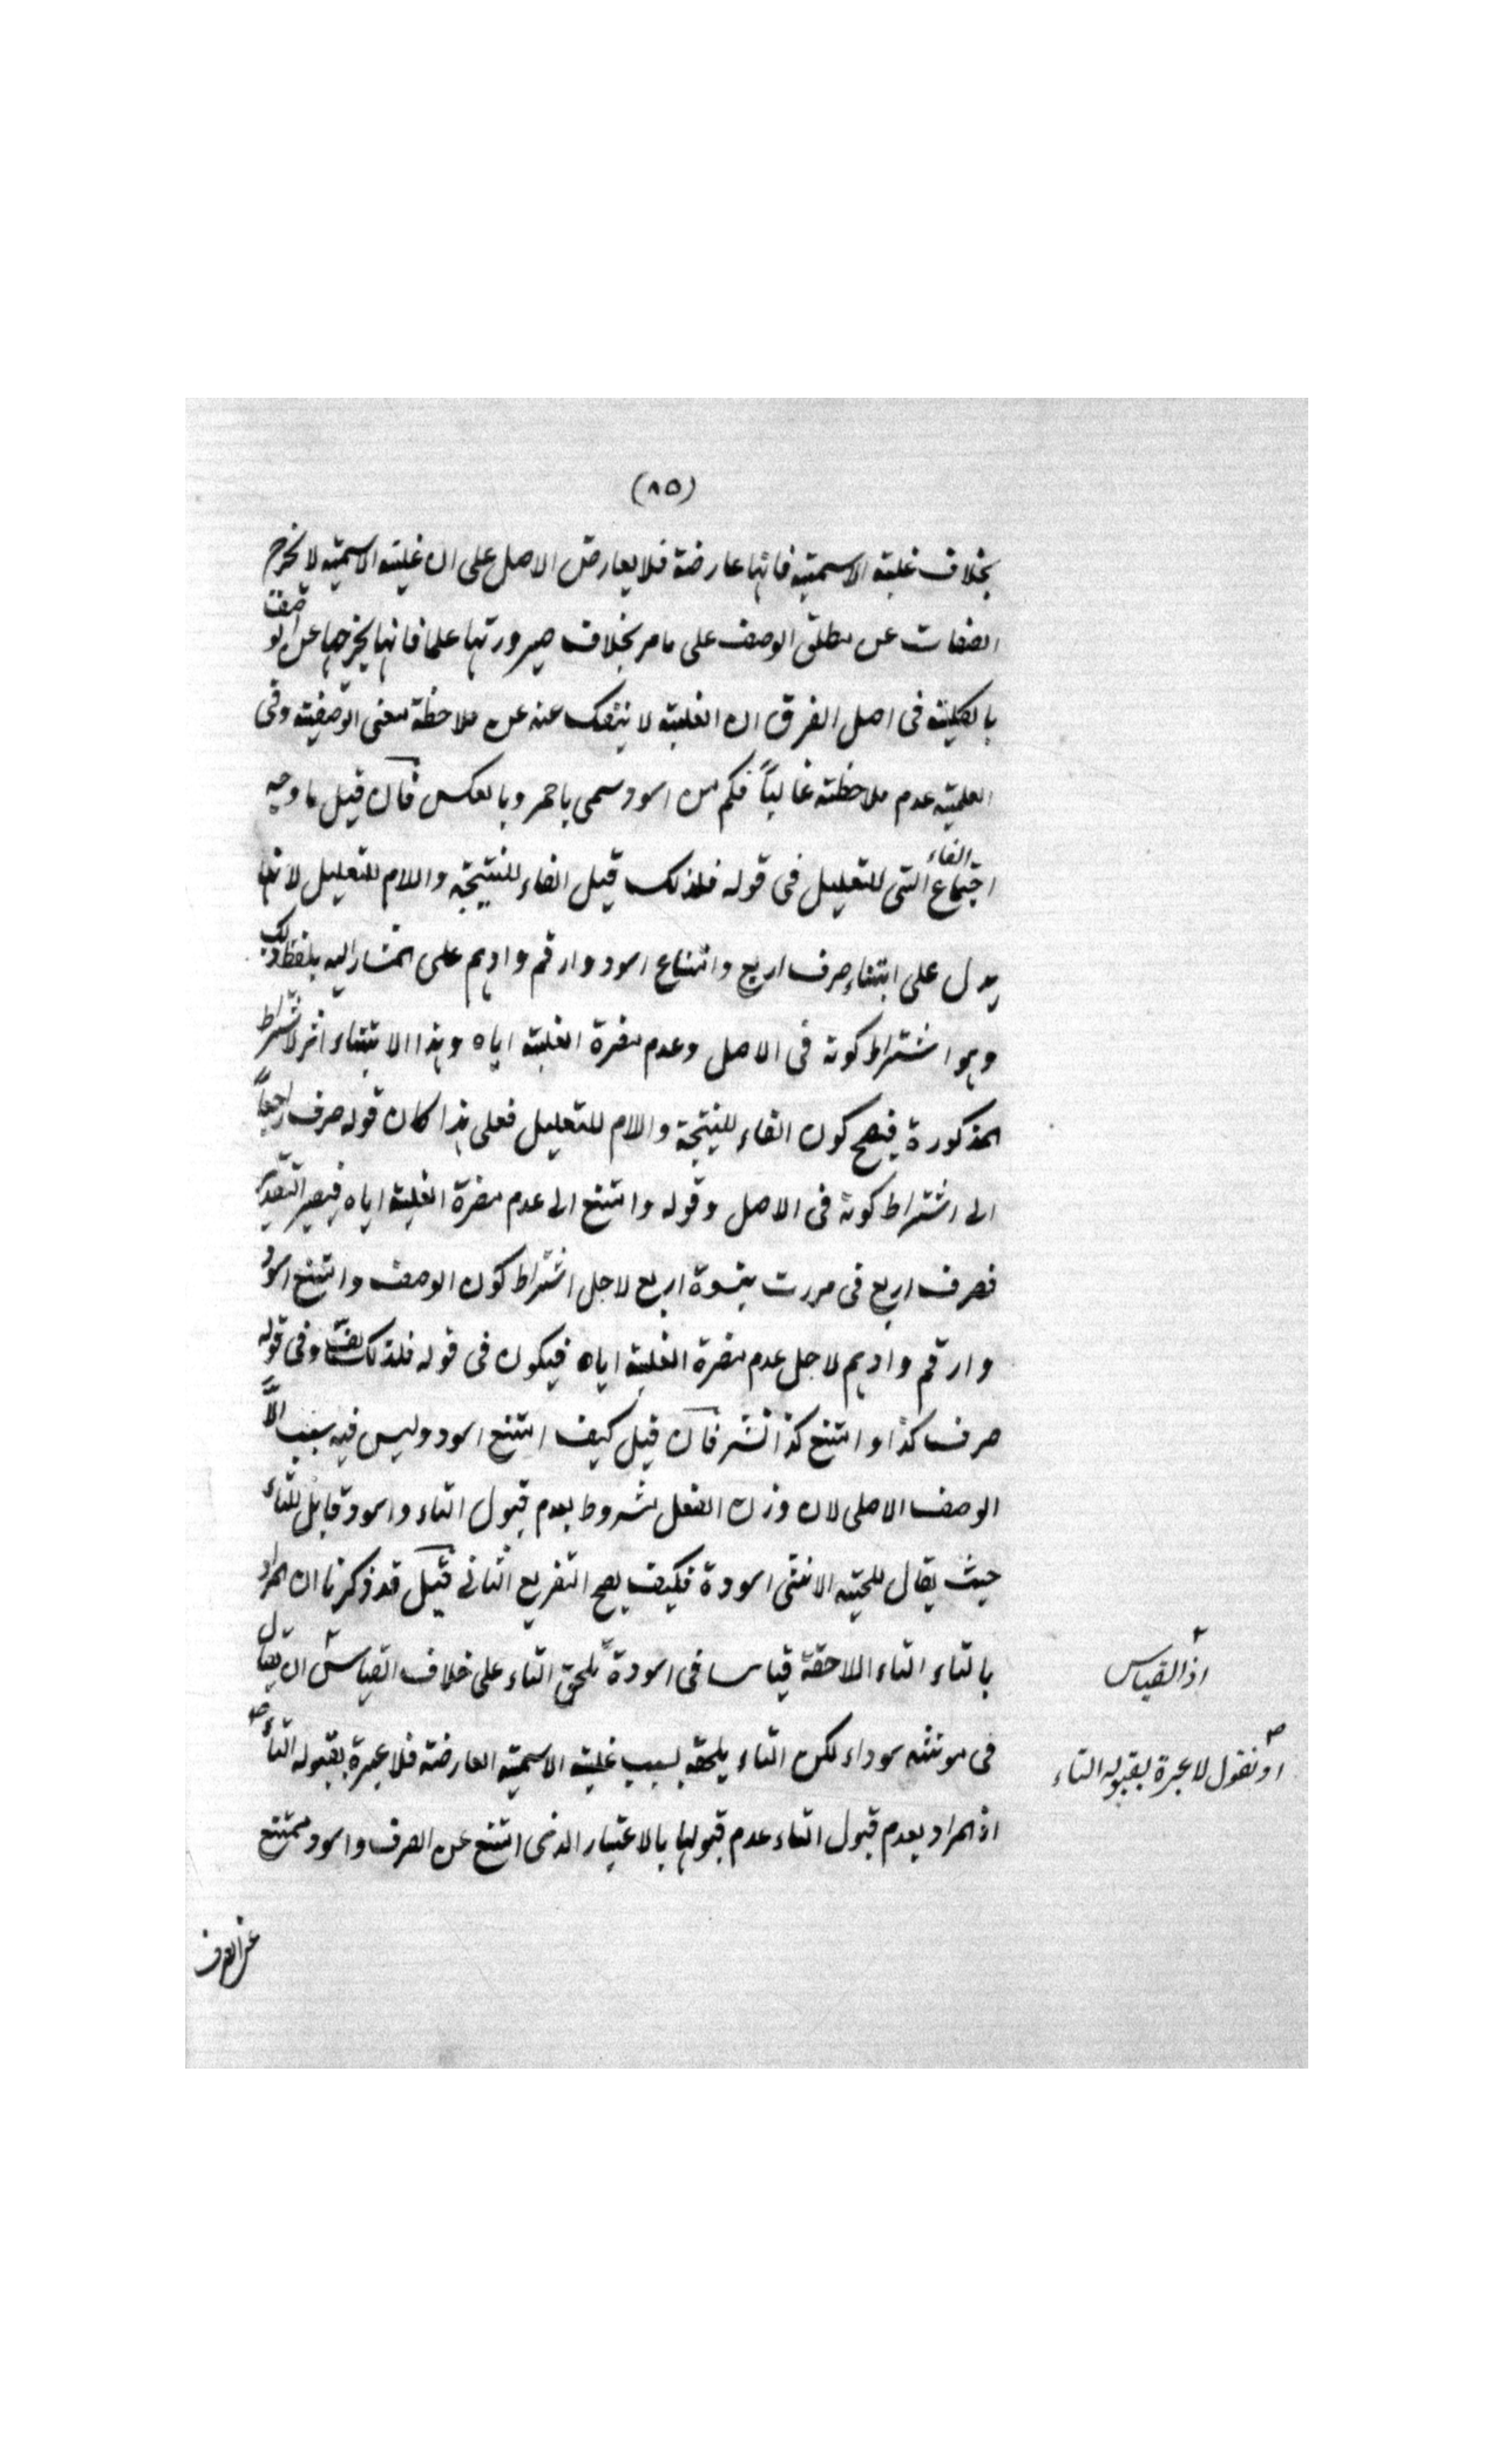 (٨٥)
بخلاف غلبة الاسمية فانها عارضة فلا يعارض الاصل على ان غلبة الاسمية لا تخرج
الصفات عن مطلق الوصف على ما مر بخلاف صيرورتها علما فانها يخرجها عن الوصف
بالكلية فى اصل الفرق ان الغلبة لا ينفك عنه عن ملاحظة معنى الوصفية وفى
العلمية عدم ملاحظته غالباً فكم من اسود سمى باحمر وبالعكس فان قيل ما وجه
اجتماع الفاء التى للتعليل فى قوله فلذلك قيل الفاء للنتيجة واللام للتعليل لانها
يدل على ابتناء صرف اربع وامتناع اسود وارقم وادهم على المشار اليه بلفظ ذلك
وهو اشتراط كونه فى الاصل وعدم مضرة الغلبة اياه وهذا الابتناء اثر لاشتراط
المذكورة فيصح كون الفاء للنتيجة والام للتعليل فعلى هذا كان قوله صرف راجعاً
الى اشتراط كونه فى الاصل وقوله وامتنع الى عدم مضرة الغلبة اياه فيصير التقدير
فصرف اربع فى مررت بنسوة اربع لاجل اشتراط كون الوصف وامتنع اسود
وارقم وادهم لاجل عدم مضرة الغلبة اياه فيكون فى قوله فلذلك لف وفى قوله
صرف كذا وامتنع كذا نشر فان قيل كيف امتنع اسود وليس فيه سبب الّا
الوصف الاصلى لان وزن الفعل مشروط بعدم قبول التاء واسود قابل للتاء
حيث يقال للحية الانثى اسودة فكيف يصح التفريع الثانى قيل قد ذكرنا ان المراد
بالتاء التاء اللاحقة قياسا فى اسودة تلحق التاء على خلاف القياس ان يقال
اذ القياس
فى مونثه سوداء لكن التاء يلحقه بسبب غلبة الاسمية العارضة فلا عبرة بقبوله التاء
او نقول لا عبرة بقبوله التاء
اذ المراد بعدم قبول التاء عدم قبولها بالاعتبار الذى امتنع عن الصرف واسود ممتنع
عن الصرف